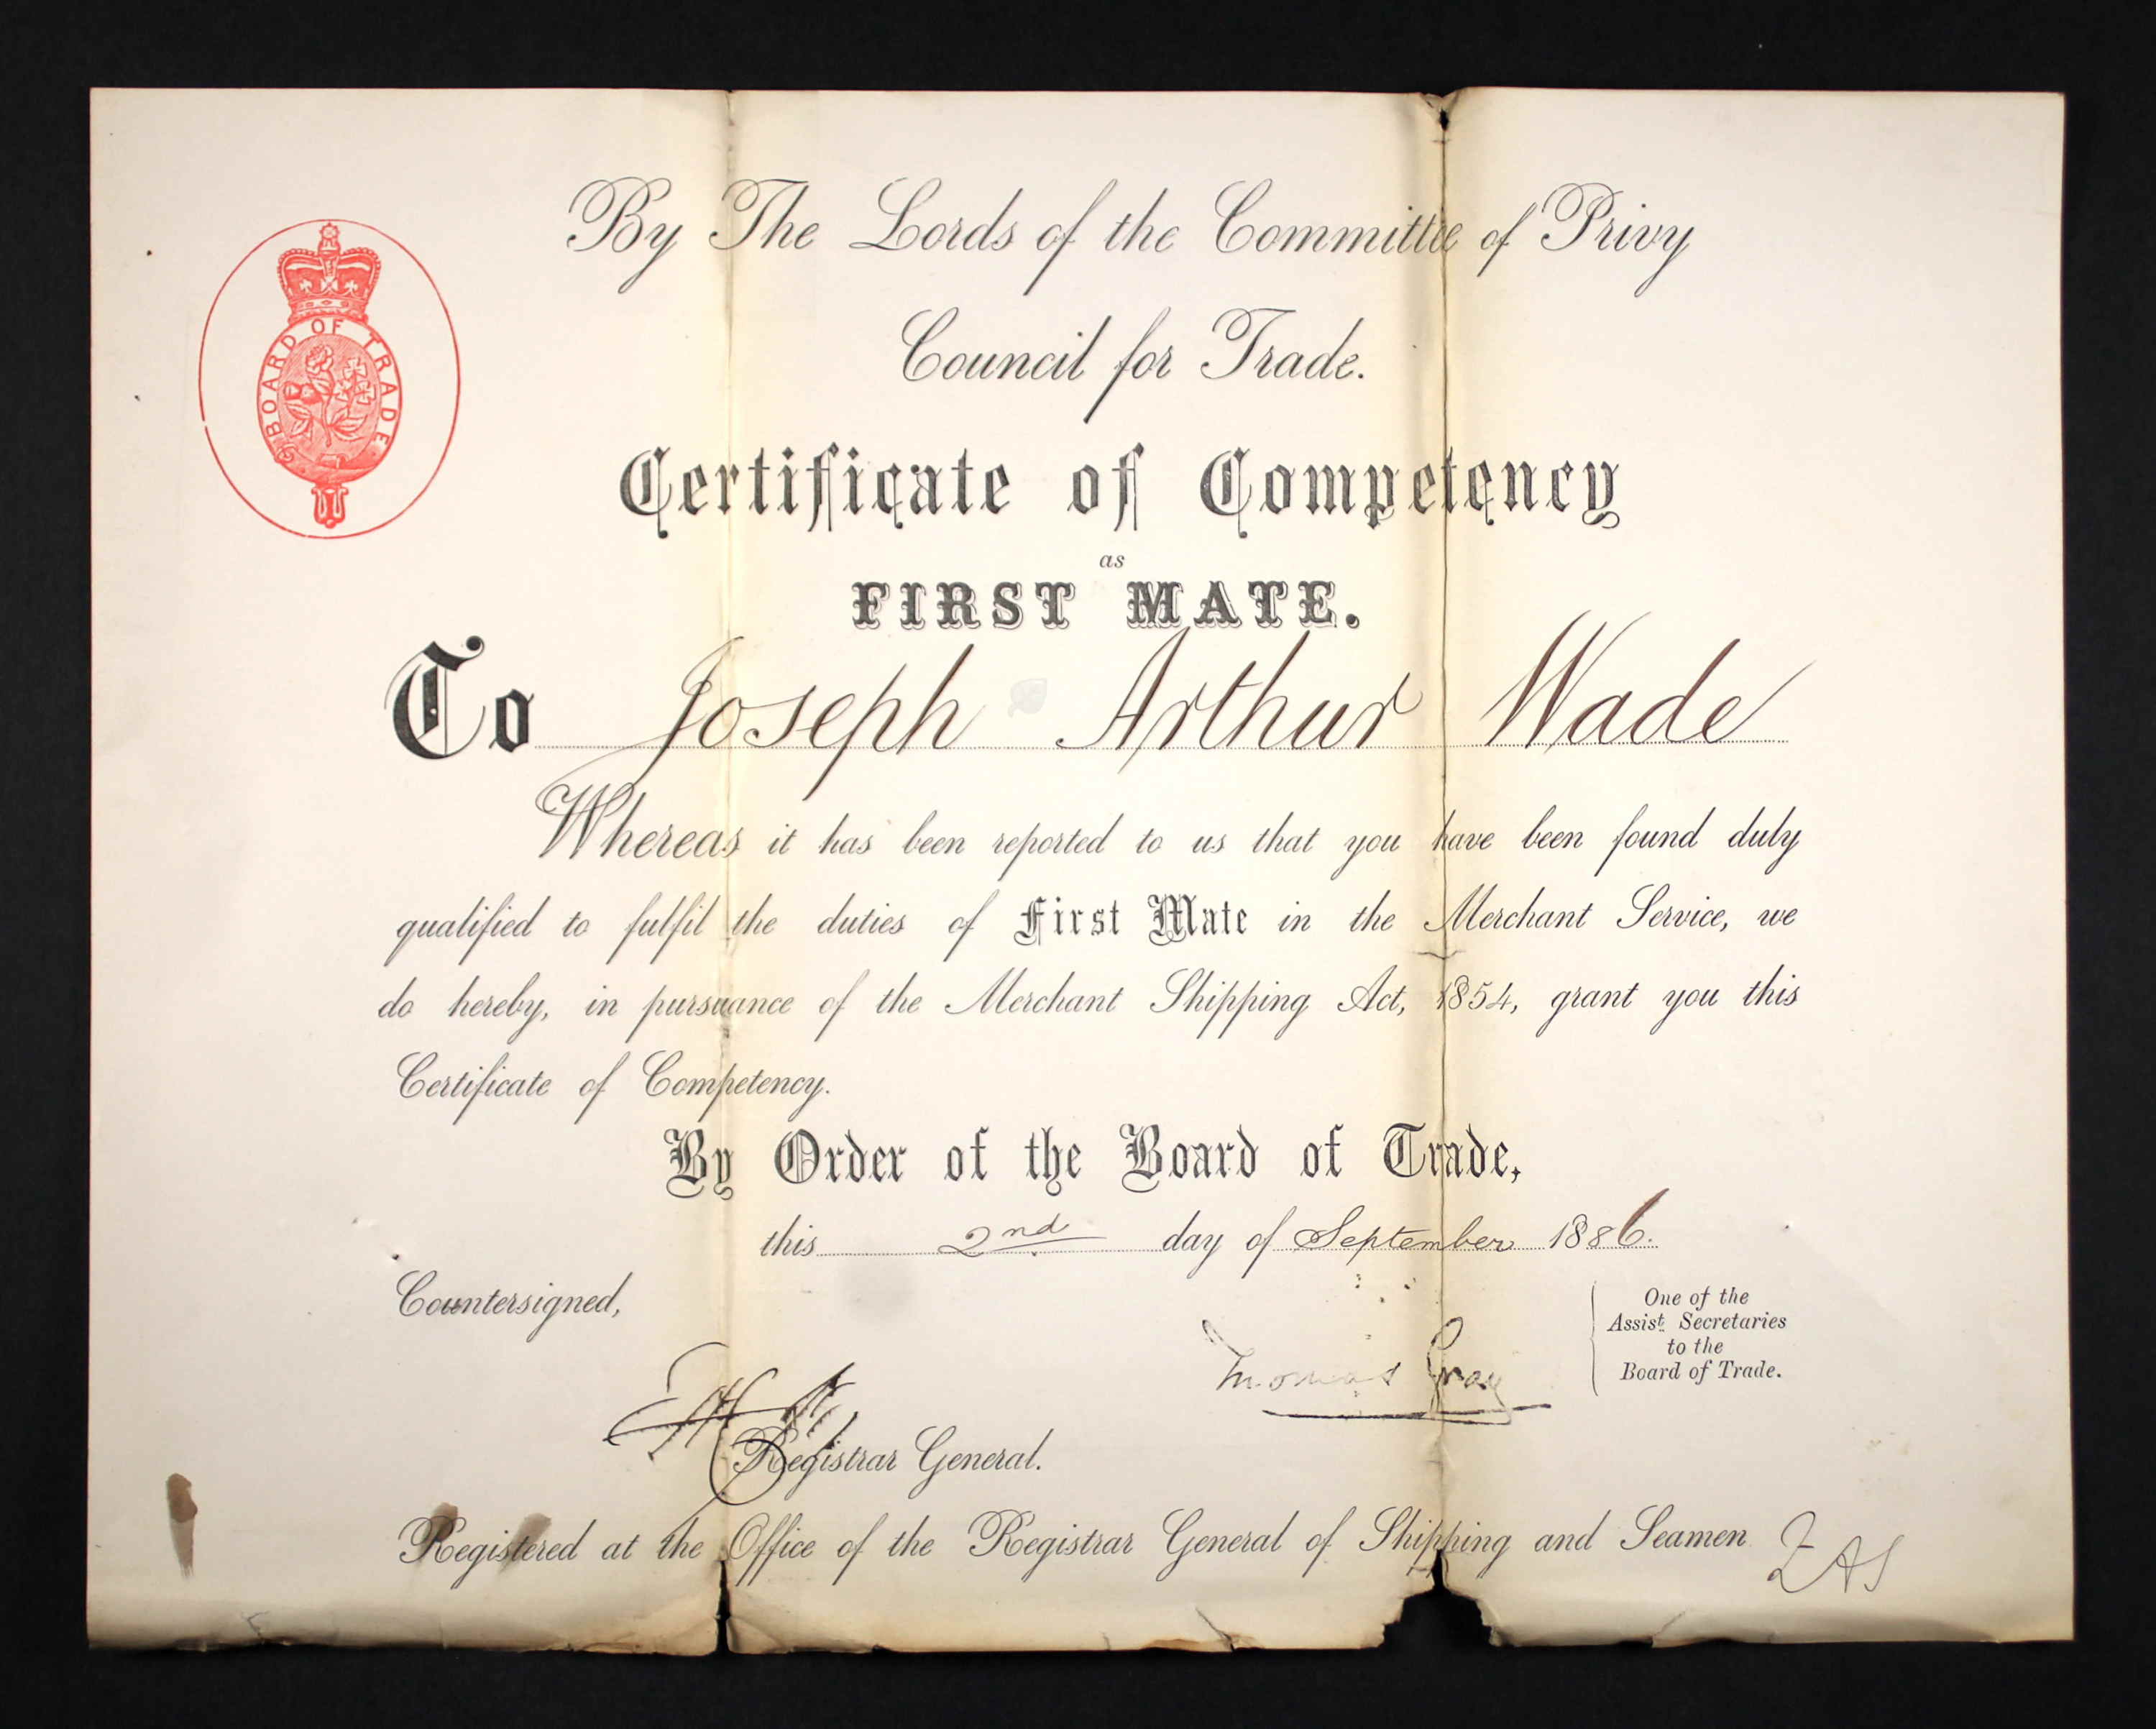 By The Lords of the Committee of Privy
Council for Trade.
BOARD OF TRADE
Certificate of Competency
as
FIRST MATE.
To Joseph Arthur Wade
Whereas it has been reported to us that you have been found duly
qualified to fulfil the duties of First Mate in the Merchant Service, we
do hereby, in pursuance of the Merchant Shipping Act, 1854, grant you this
Certificate of Competency.
By Order of the Board of Trade,
this 2nd day of September 1886.
Countersigned,
Thomas Gray
One of the
Assist. Secretaries
to the
Board of Trade.
Registrar General.
Registered at the Office of the Registrar General of Shipping and Seamen